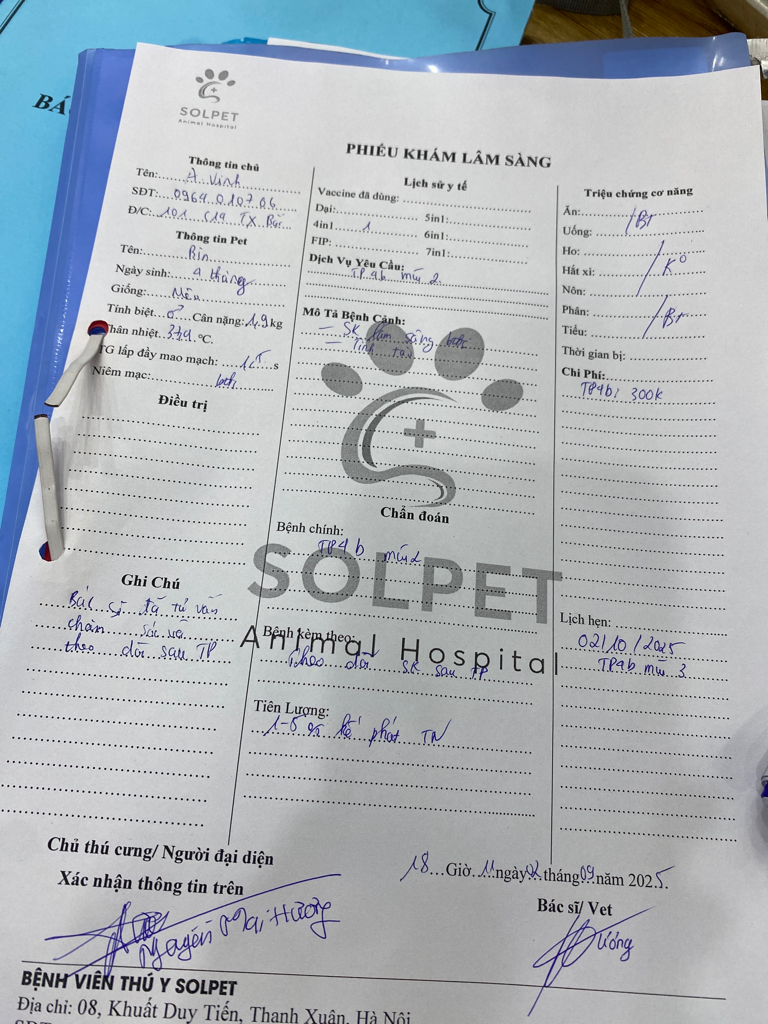 BÁ
SOLPET
Animal Hospital
PHIẾU KHÁM LÂM SÀNG
Thông tin chủ
Tên: A Vinh
SĐT: 0969.010706
Đ/C: 101 C19 TX
Thông tin Pet
Tên: Bin
Ngày sinh: 4 tháng
Giống: Mèo
Tính biệt ♂ Cân nặng: 1,9 kg
Thân nhiệt ℃.
TG lấp đầy mao mạch: s
Niêm mạc:
Điều trị
Ghi Chú
Bác sĩ đã tư vấn
chăm sóc và
theo dõi sau TP
Lịch sử y tế
Vaccine đã dùng:
Dại: 5in1:
4in1 1 6in1:
FIP: 7in1:
Dịch Vụ Yêu Cầu:
TP4b mũi 2
Mô Tả Bệnh Cảnh:
- SK lâm sàng bt
- Tỉnh táo
Chẩn đoán
Bệnh chính:
TP4b mũi 2
SOLPET
Animal Hospital
Bệnh kèm theo:
Theo dõi SK sau TP
Tiên Lượng:
1-5% kế phát TN
Triệu chứng cơ năng
Ăn:
Uống: Bt
Ho:
Hắt xì: Ko
Nôn:
Phân: Bt
Tiểu:
Thời gian bị:
Chi Phí:
TP4b: 300k
Lịch hẹn:
02/10/2025
TP4b mũi 3
Chủ thú cưng/ Người đại diện
Xác nhận thông tin trên
Nguyễn Mai Hương
18 Giờ 11 ngày 02 tháng 09 năm 2025.
Bác sĩ/ Vet
BỆNH VIỆN THÚ Y SOLPET
Địa chỉ: 08, Khuất Duy Tiến, Thanh Xuân, Hà Nội